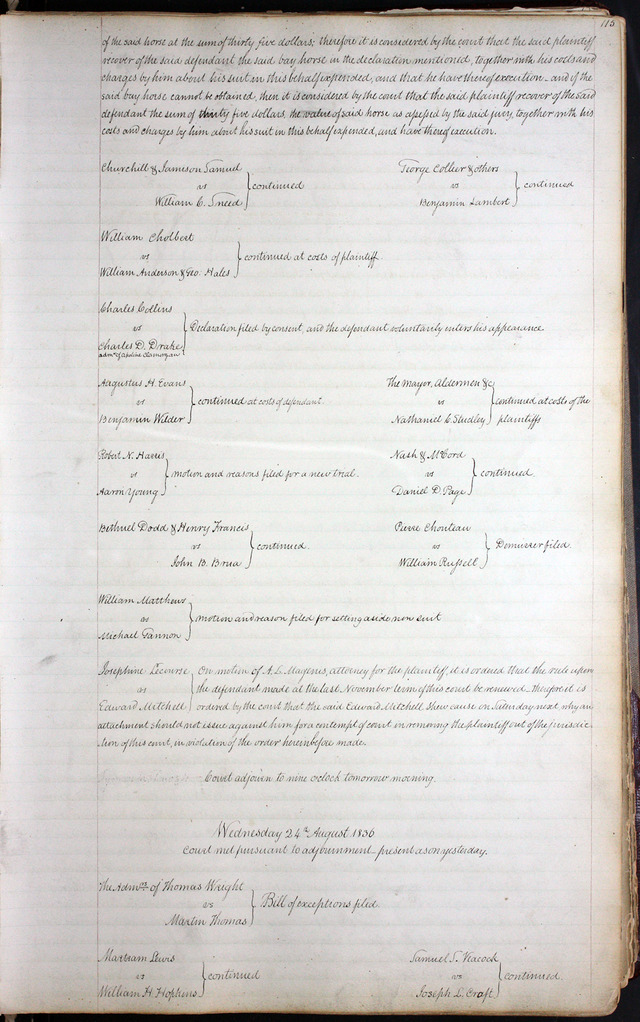 115
of the said horse at the sum of thirty five dollars; therefore it is considered by the court that the said plaintiff
recover of the said defendant the said bay horse in the declaration mentioned, together with his costs and
charges by him about his suit in this behalf expended, and that he have thereof execution. and if the
said bay horse cannot be obtained, then it is considered by the court that the said plaintiff recover of the said
defendant the sum of thirty five dollars, the value of said horse as assessed by the said jury, together with his
costs and charges by him about his suit in this behalf expended, and have thereof execution.
Churchill & Jameson Samuel
vs
William C. Sneed
continued
George Collier & others
vs
Benjamin Lambert
continued
William Cholbert
vs
William Anderson & Geo. Hales
continued at costs of plaintiff.
Charles Collins
vs
Charles D. Drake
admr of
Declaration filed by consent, and the defendant voluntarily enters his appearance
Augustus H. Evans
vs
Benjamin Wilder
continued at costs of defendant
The Mayor, Aldermen &c
vs
Nathaniel C. Studley
continued at costs of the
plaintiffs
Robert N. Harris
vs
Aaron Young
motion and reasons filed for a new trial.
Nash & McCord
vs
Daniel D. Page
continued.
Bethuel Dodd & Henry Francis
vs
John B. Brua
continued.
Pierre Chouteau
vs
William Russell
Demurrer filed.
William Matthews
vs
Michael Gannon
motion and reason filed for setting aside non suit
Josephine Lecourse
vs
Edward Mitchell
On motion of A. L. Magenis, attorney for the plaintiff, it is ordered that the rule upon
the defendant made at the last November term of this court be renewed therefore it is
ordered by the court that the said Edward Mitchell shew cause on Saturday next why an
attachment should not issue against him for a contempt of court in removing the plaintiff out of the jurisdic-
tion of this court, in violation of the order hereinbefore made.
Court adjourn to nine o'clock tomorrow morning.
Wednesday 24th August 1836
Court met pursuant to adjournment present as on yesterday.
The Admrs of Thomas Wright
vs
Martin Thomas
Bill of exceptions filed
Martram Lewis
vs
William H. Hopkins
continued
Samuel S. Peacock
vs
Joseph L. Craft
continued.